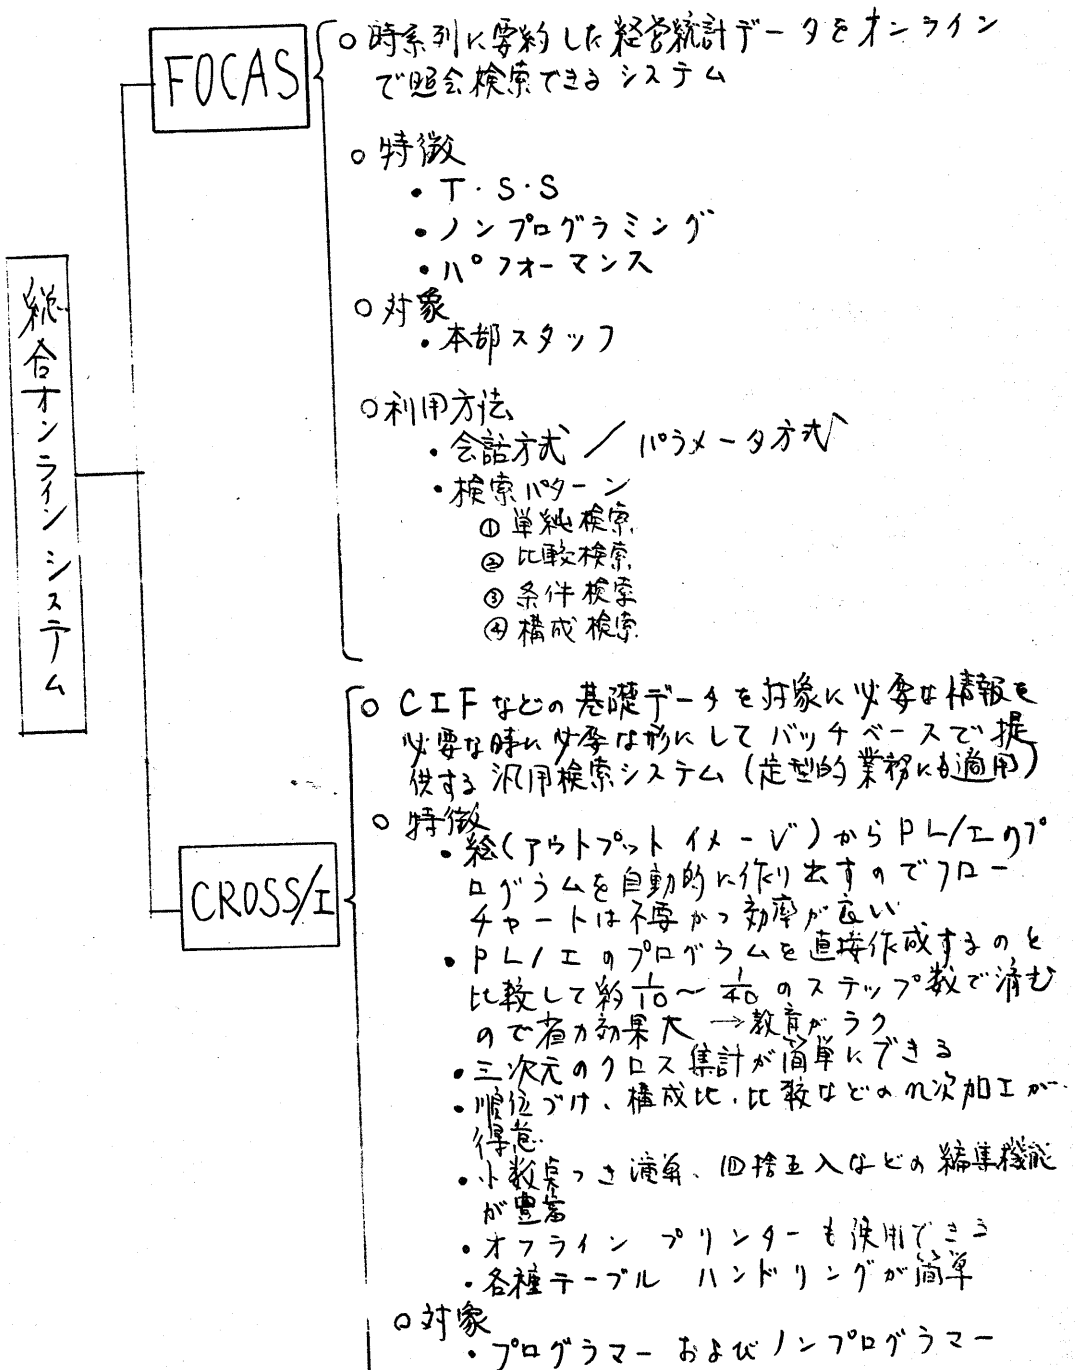 総合オンラインシステム
FOCAS
○ 時系列に要約した経営統計データをオンライン
で照会検索できるシステム
○ 特徴
・T・S・S
・ノンプログラミング
・パフォーマンス
○ 対象
・本部スタッフ
○ 利用方法
・会話方式 / パラメータ方式
・検索パターン
① 単純検索
② 比較検索
③ 条件検索
④ 構成検索
CROSS/I
○ CIFなどの基礎データを対象に必要な情報を
必要な時に必要な形にしてバッチベースで提
供する汎用検索システム(定型的業務にも適用)
○ 特徴
・絵(アウトプットイメージ)からPL/Iのプ
ログラムを自動的に作り出すのでフロー
チャートは不要かつ効率が良い
・PL/Iのプログラムを直接作成するのと
比較して約1/10〜1/40のステップ数で済む
ので省力効果大 →教育がラク
・三次元のクロス集計が簡単にできる
・順位づけ、構成比、比較などのn次加工が
得意
・小数点つき演算、四捨五入などの編集機能
が豊富
・オフライン プリンターも使用できる
・各種テーブル ハンドリングが簡単
○ 対象
・プログラマー およびノンプログラマー